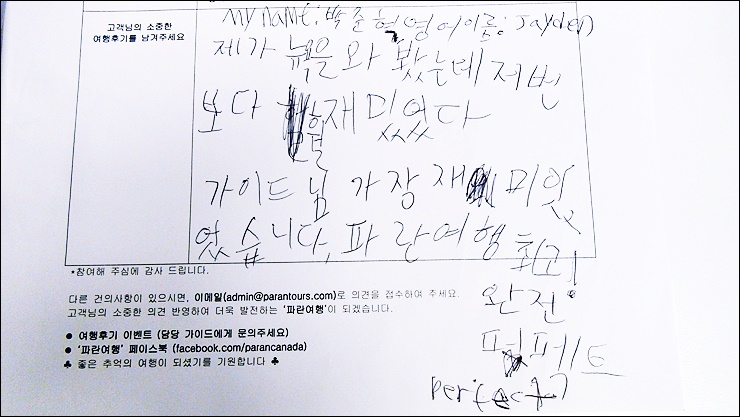 고객님의 소중한
여행후기를 남겨주세요
my name: 박준혁 영어이름: Jayden
제가 뉵욕을 와 봤는데 저번
보다 훨 재미 있었다
가이드님 가장 재 미있
었습니다, 파란여행
최고!
완전
퍼펙트
perfect
*참여해 주심에 감사 드립니다.
다른 건의사항이 있으시면, 이메일(admin@parantours.com)로 의견을 접수하여 주세요.
고객님의 소중한 의견 반영하여 더욱 발전하는 '파란여행'이 되겠습니다.
● 여행후기 이벤트 (담당 가이드에게 문의주세요)
● '파란여행' 페이스북 (facebook.com/parancanada)
♣ 좋은 추억의 여행이 되셨기를 기원합니다 ♣